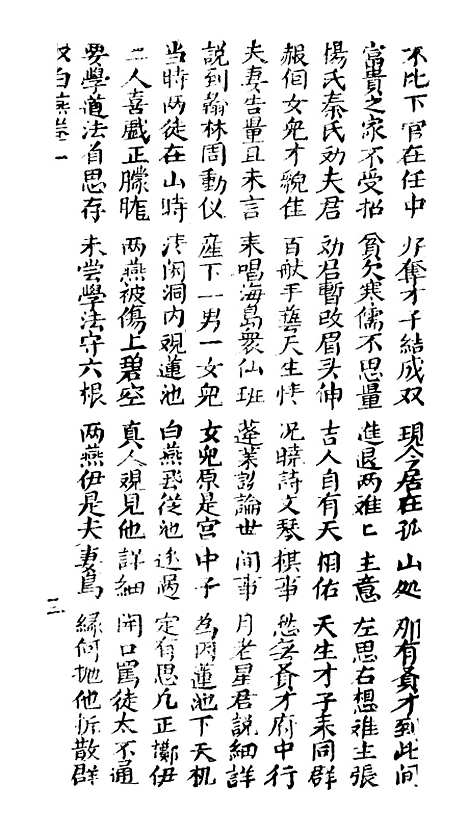 不比下官在任中 才子結成双 現今居在孤山处 那有負才到此间
富貴之家不受招 貧欠寒儒不思量 進退两难亡主意 左思右想难主張
楊氏秦氏劝夫君 劝君暫改眉头伸 吉人自有天相佑 天生才子来同群
個女兒才貌佳 百般手藝天生情 况曉詩文琴棋事 愁無貴才府中行
夫妻告量且未言 来唱海島衆仙班 蓬莱談論世间事 月老星君說細詳
說到翰林周動仪 產下一男一女兒 女兒原是宮中子 為因蓮池下天机
当時两徒在山時 清闲洞内視蓮池 白燕飛從池途過 定有思凡正擲伊
二人喜戲正朦 两燕被傷上碧空 真人視見他詳細 開口罵徒太不通
要學道法自思存 未尝學法守六根 两燕伊是夫妻鳥 緣何抛他拆散群
双白燕卷一 二